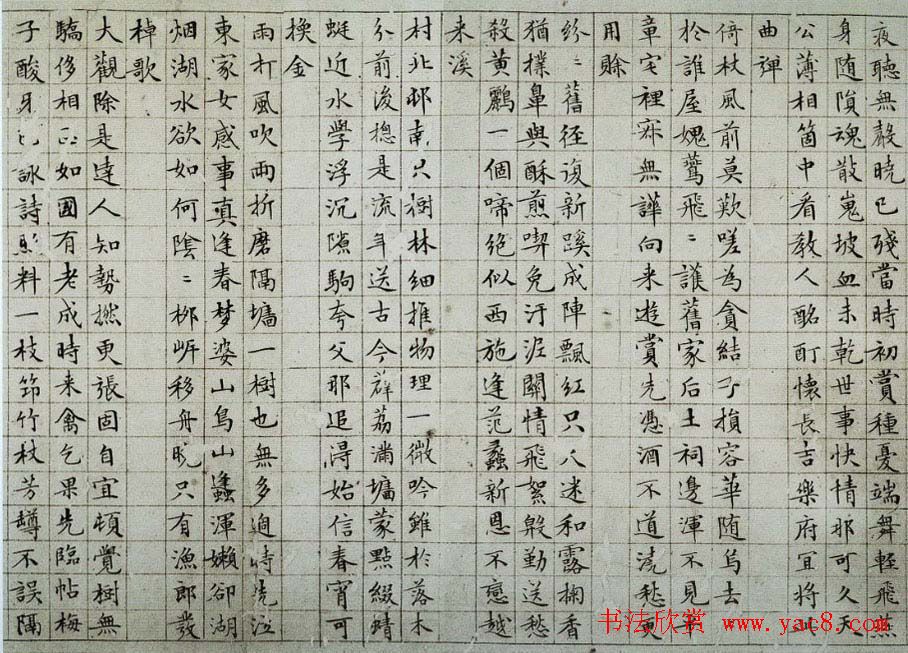 夜聽無聲曉已殘當時初賞種憂端舞輕飛燕
身随隕魂散嵬坡血未乾世事快情那可久天
公薄相箇中看教人酩酊懷長吉樂府宜將此
曲禪
倚杖風前莫歎嗟為貪結子損容華随烏去
於誰屋媿鶯飛〻護舊家后土祠邊渾不見
章宅裡寂無譁向来遊賞先憑酒不道澆愁更
用賒
紛〻舊徑復新蹊成陣飄紅只八迷和露掬香
猶撲鼻與酥煎喫免汙泥關情飛絮殷勤送愁
殺黄鸝一個啼絕似西施逢范蠡新恩不戀越
来溪
村北邨南只樹林細推物理一微吟雖於落木
分前後揔是流年送古今群荔滿墻蒙點綴蜻
蜓近水學浮沉隙駒夸父那追得始信春宵可
換金
雨打風吹兩折磨隔墻一樹也無多過時
東家女感事真逢春梦婆山鳥山蜂渾嬾卻湖
烟湖水欲如何陰〻柳岸移舟晚只有漁郎發
棹歌
大觀除是達人知勢撚更張固自宜頓覺樹無
驕侈相正如國有老成時来禽乞果先臨帖梅
子酸牙已詠詩料一枝筇竹杖芳罇不誤隔
书法欣赏 www.yac8.com